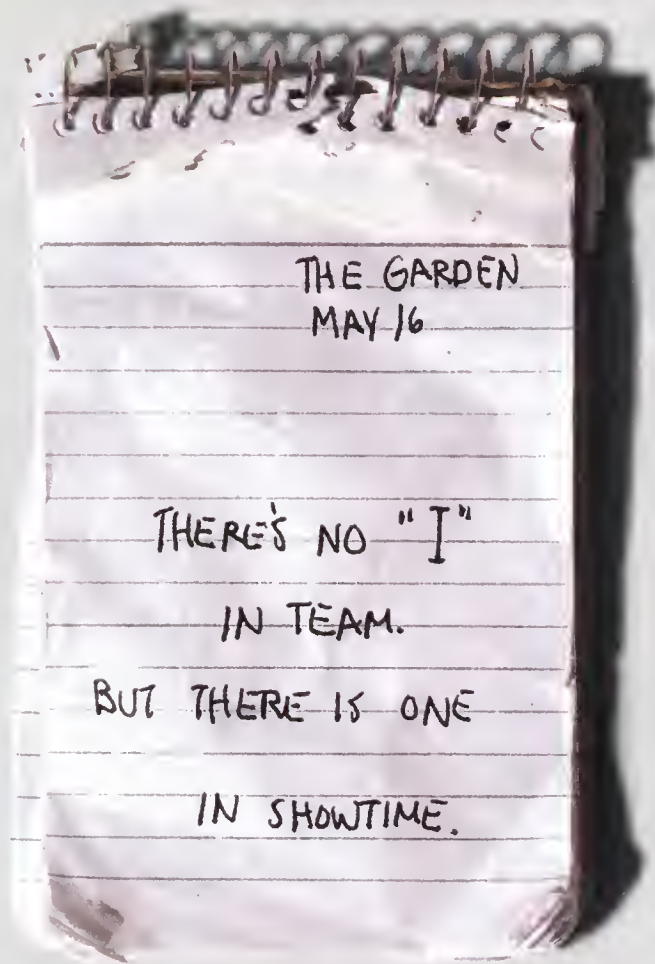 THE GARDEN
MAY 16
THERE'S NO "I"
IN TEAM.
BUT THERE IS ONE
IN SHOWTIME.